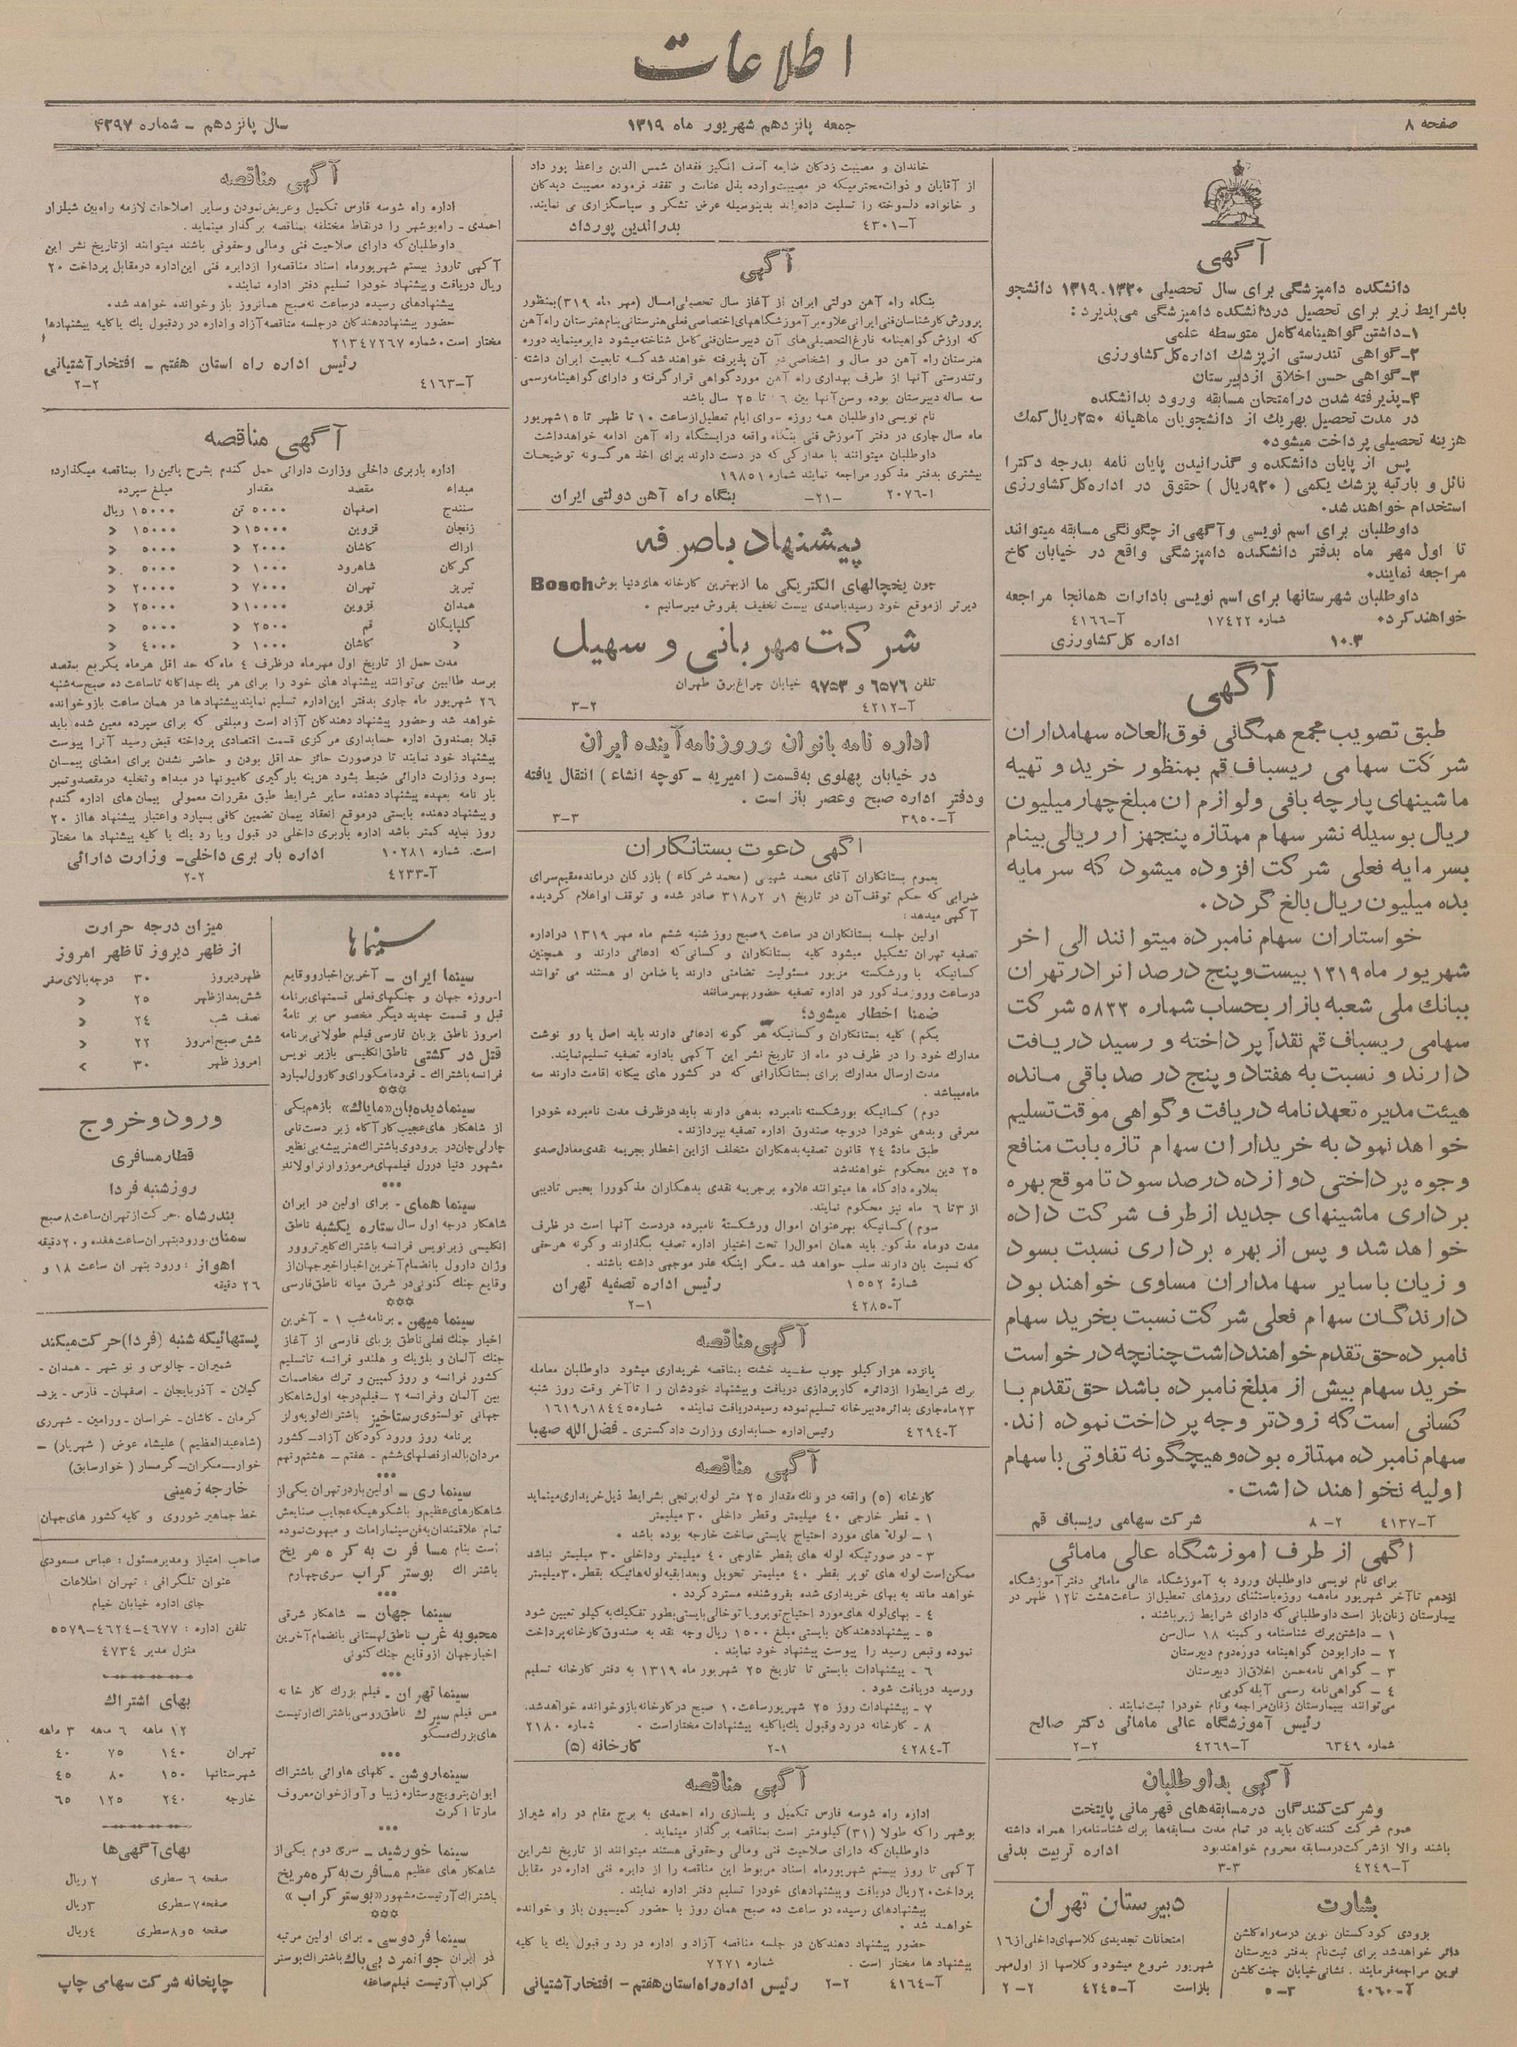 اطلاعات
صفحه ۸
جمعه پانزدهم شهریور ماه ۱۳۱۹
سال پانزدهم – شماره ۴۳۹۷
آگهی
دانشکده دامپزشگی برای سال تحصیلی ۱۳۲۰-۱۳۱۹ دانشجو
باشرایط زیر برای تحصیل دردانشکده دامپزشگی می‌پذیرد :
۱- داشتن گواهینامه کامل متوسطه علمی
۲- گواهی تندرستی ازپزشك اداره کل کشاورزی
۳- گواهی حسن اخلاق ازدبیرستان
۴- پذیرفته شدن درامتحان مسابقه ورود بدانشکده
در مدت تحصیل بهریك از دانشجویان ماهیانه ۲۵۰ ریال کمك
هزینه تحصیلی پرداخت میشود.
پس از پایان دانشکده و گذرانیدن پایان نامه بدرجه دکترا
نائل و بارتبه پزشك یکمی ( ۹۲۰ ریال ) حقوق در اداره کل کشاورزی
استخدام خواهند شد.
داوطلبان برای اسم نویسی و آگهی از چگونگی مسابقه میتوانند
تا اول مهر ماه بدفتر دانشکده دامپزشگی واقع در خیابان کاخ
مراجعه نمایند.
داوطلبان شهرستانها برای اسم نویسی بادارات همانجا مراجعه
خواهند کرد. شماره ۱۷۴۲۲ آ-۴۱۶۶
۱۰-۳ اداره کل کشاورزی
آگهی
طبق تصویب مجمع همگانی فوق العاده سهامداران
شرکت سهامی ریسباف قم بمنظور خرید و تهیه
ماشینهای پارچه بافی ولوازم آن مبلغ چهار میلیون
ریال بوسیله نشر سهام ممتازه پنجهزار ریالی بینام
بسرمایه فعلی شرکت افزوده میشود که سرمایه
بده میلیون ریال بالغ گردد.
خواستاران سهام نامبرده میتوانند الی آخر
شهریور ماه ۱۳۱۹ بیست و پنج درصد آنرا در تهران
ببانك ملی شعبه بازار بحساب شماره ۵۸۳۳ شرکت
سهامی ریسباف قم نقداً پرداخته و رسید دریافت
دارند و نسبت به هفتاد و پنج در صد باقی مانده
هیئت مدیره تعهدنامه دریافت و گواهی موقت تسلیم
خواهد نمود به خریداران سهام تازه بابت منافع
وجوه پرداختی دوازده درصد سود تا موقع بهره
برداری ماشینهای جدید از طرف شرکت داده
خواهد شد و پس از بهره برداری نسبت بسود
و زیان با سایر سهامداران مساوی خواهند بود
دارندگان سهام فعلی شرکت نسبت بخرید سهام
نامبرده حق تقدم خواهند داشت چنانچه درخواست
خرید سهام بیش از مبلغ نامبرده باشد حق تقدم با
کسانی است که زودتر وجه پرداخت نموده اند.
سهام نامبرده ممتازه بوده و هیچگونه تفاوتی با سهام
اولیه نخواهند داشت.
آ-۴۱۳۷ ۸-۲ شرکت سهامی ریسباف قم
آگهی از طرف آموزشگاه عالی مامائی
برای نام نویسی داوطلبان ورود به آموزشگاه عالی مامائی دفتر آموزشگاه
تا آخر شهریور ماه همه روزه باستثنای روزهای تعطیل از ساعت هشت تا ۱۲ ظهر در
بیمارستان زنان باز است داوطلبانی که دارای شرایط زیر باشند .
۱ – داشتن برك شناسنامه و کمینه ۱۸ سال سن
۲ – دارا بودن گواهینامه دوره دوم دبیرستان
۳ – گواهی نامه حسن اخلاق از دبیرستان
۴ – گواهی نامه رسمی آبله کوبی
می توانند ببیمارستان زنان مراجعه و نام خود را ثبت نمایند .
رئیس آموزشگاه عالی مامائی دکتر صالح
شماره ۶۳۴۹ آ-۴۲۶۹ ۲-۲
آگهی بداوطلبان
و شرکت کنندگان در مسابقه‌های قهرمانی پایتخت
عموم شرکت کنندگان باید در تمام مدت مسابقه‌ها برك شناسنامه را همراه داشته
باشند والا از شرکت در مسابقه محروم خواهند بود اداره تربیت بدنی
آ-۴۲۴۹ ۳-۳
بشارت
بزودی کودکستان نوین در سه راه گلشن
دائر خواهد شد برای ثبت نام بدفتر دبیرستان
نوین مراجعه فرمایند . نشانی خیابان جنت گلشن
آ-۴۰۶۰ ۵-۳
دبیرستان تهران
امتحانات تجدیدی کلاسهای داخلی از ۱۶
شهریور شروع میشود و کلاسها از اول مهر
باز است آ-۴۲۴۵ ۲-۲
خاندان و مصیبت زدگان ضایعه اسف انگیز فقدان شمس الدین واعظ پور داد
از آقایان و ذوات محترمیکه در مصیبت وارده بذل عنایت و تفقد فرموده مصیبت دیدگان
و خانواده دلسوخته را تسلیت داده‌اند بدینوسیله عرض تشکر و سپاسگزاری می نمایند.
آ-۴۳۰۱ بدرالدین پورداد
آگهی
بنگاه راه آهن دولتی ایران از آغاز سال تحصیلی امسال (مهر ماه ۳۱۹) بمنظور
پرورش کارشناسان فنی ایرانی علاوه بر آموزشگاههای اختصاصی فعلی هنرستانی بنام هنرستان راه آهن
که ارزش گواهینامه فارغ التحصیلی‌های آن دبیرستان فنی کامل شناخته میشود دایر مینماید دوره
هنرستان راه آهن دو سال و اشخاصی در آن پذیرفته خواهند شد که تابعیت ایران داشته
و تندرستی آنها از طرف بهداری راه آهن مورد گواهی قرار گرفته و دارای گواهینامه رسمی
سه ساله دبیرستان بوده و سن آنها بین ۱۶ تا ۲۵ سال باشد
نام نویسی داوطلبان همه روزه سوای ایام تعطیل از ساعت ۱۰ تا ظهر تا ۱۵ شهریور
ماه سال جاری در دفتر آموزش فنی بنگاه واقعه در ایستگاه راه آهن ادامه خواهد داشت
داوطلبان میتوانند با مدارکی که در دست دارند برای اخذ هر گونه توضیحات
بیشتری بدفتر مذکور مراجعه نمایند شماره ۱۹۸۵۱
آ-۲۰۷۶ -۲۱- بنگاه راه آهن دولتی ایران
پیشنهاد باصرفه
چون یخچالهای الکتریکی ما از بهترین کارخانه های دنیا بوش Bosch
دیرتر از موقع خود رسید باصدی بیست تخفیف بفروش میرسانیم .
شرکت مهربانی و سهیل
تلفن ۶۵۷۶ و ۹۷۵۳ خیابان چراغ برق طهران
آ-۴۲۱۲ ۳-۲
اداره نامه بانوان و روزنامه آینده ایران
در خیابان پهلوی به قسمت ( امیریه – کوچه انشاء ) انتقال یافته
ودفتر اداره صبح وعصر باز است .
آ-۳۹۵۰ ۳-۳
آگهی دعوت بستانکاران
بعموم بستانکاران آقای محمد شهیبی ( محمد شرکاء ) بازرگان درمانده مقیم سرای
شرابی که حکم توقف آن در تاریخ ۱ر۲ر۳۱۸ صادر شده و توقف او اعلام گردیده
آگهی میدهد :
اولین جلسه بستانکاران در ساعت ۹ صبح روز شنبه ششم ماه مهر ۱۳۱۹ در اداره
تصفیه تهران تشکیل میشود کلیه بستانکاران و کسانی که ادعائی دارند و همچنین
کسانیکه با ورشکسته مزبور مسئولیت تضامنی دارند یا ضامن او هستند می توانند
در ساعت و روز مذکور در اداره تصفیه حضور بهمرسانند
ضمناً اخطار میشود:
یکم) کلیه بستانکاران و کسانیکه هر گونه ادعائی دارند باید اصل یا رو نوشت
مدارك خود را در ظرف دو ماه از تاریخ نشر این آگهی باداره تصفیه تسلیم نمایند.
مدت ارسال مدارك برای بستانکارانی که در کشور های بیگانه اقامت دارند سه
ماه میباشد .
دوم) کسانیکه بورشکسته نامبرده بدهی دارند باید در ظرف مدت نامبرده خود را
معرفی و بدهی خود را در وجه صندوق اداره تصفیه بپردازند.
طبق مادۀ ۲۴ قانون تصفیه بدهکاران متخلف از این اخطار بجریمه نقدی معادل صدی
۲۵ دین محکوم خواهند شد
بعلاوه دادگاه ها میتوانند علاوه بر جریمه نقدی بدهکاران مذکور را بحبس تادیبی
از ۳ تا ۶ ماه نیز محکوم نمایند.
سوم) کسانیکه بهر عنوان اموال ورشکستۀ نامبرده در دست آنها است در ظرف
مدت دو ماه مذکور باید همان اموال را تحت اختیار اداره تصفیه بگذارند و گرنه هر حقی
که نسبت بان دارند سلب خواهد شد – مگر اینکه عذر موجهی داشته باشند .
شمارۀ ۱۵۵۲ رئیس اداره تصفیه تهران
آ-۴۲۸۵ ۲-۱
آگهی مناقصه
پانزده هزار کیلو چوب سفید خشت بمناقصه خریداری میشود داوطلبان معامله
برك شرایط را از دائره کارپردازی دریافت و پیشنهاد خودشان را تا آخر وقت روز شنبه
۲۳ ماه جاری بدائره دبیرخانه تسلیم نموده رسید دریافت نمایند. شماره ۱۸۴۴۵ر۱۶۱۹
آ-۴۲۹۴ رئیس اداره حسابداری وزارت دادگستری – فضل الله صهبا
آگهی مناقصه
کارخانه (۵) واقعه در ونك مقدار ۲۵ متر لوله برنجی بشرایط ذیل خریداری مینماید
۱ – قطر خارجی ۴۰ میلیمتر و قطر داخلی ۳۰ میلیمتر
۱ – لوله های مورد احتیاج بایستی ساخت خارجه بوده باشد .
۳ – در صورتیکه لوله های بقطر خارجی ۴۰ میلیمتر و داخلی ۳۰ میلیمتر نباشد
ممکن است لوله های توپر بقطر ۴۰ میلیمتر تحویل و بعد ابقیه لوله هائیکه بقطر ۳۰ میلیمتر
خواهد ماند به بهای خریداری شده بفروشنده مسترد گردد .
۴ – بهای لوله های مورد احتیاج توپر و یا تو خالی بایستی بطور تفکیك به کیلو تعیین شود
۵ – پیشنهاد دهندگان بایستی مبلغ ۱۵۰۰ ریال وجه نقد به صندوق کارخانه پرداخت
نموده و قبض رسید را پیوست پیشنهاد خود نمایند .
۶ – پیشنهادات بایستی تا تاریخ ۲۵ شهریور ماه ۱۳۱۹ به دفتر کارخانه تسلیم
و رسید دریافت شود .
۷ – پیشنهادات روز ۲۵ شهریور ساعت ۱۰ صبح در کارخانه باز و خوانده خواهد شد.
۸ – کارخانه در رد و قبول یك یا کلیه پیشنهادات مختار است . شماره ۲۱۸۰
آ-۴۲۸۴ ۲-۱ کارخانه (۵)
آگهی مناقصه
اداره راه شوسه فارس تکمیل و پلسازی راه احمدی به برج مقام در راه شیراز
بوشهر را که طولا (۳۱) کیلومتر است بمناقصه برگذار مینماید .
داوطلبان که دارای صلاحیت فنی ومالی وحقوقی هستند میتوانند از تاریخ نشر این
آگهی تا روز بیستم شهریور ماه اسناد مربوط این مناقصه را از دایره فنی اداره در مقابل
پرداخت ۲۰ ریال دریافت و پیشنهادهای خود را تسلیم دفتر اداره نمایند .
پیشنهادهای رسیده در ساعت ده صبح همان روز با حضور کمیسیون باز و خوانده
خواهد شد .
حضور پیشنهاد دهندگان در جلسه مناقصه آزاد و اداره در رد و قبول یك یا کلیه
پیشنهاد ها مختار است . شماره ۷۲۷۱
آ-۴۱۶۴ ۲-۲ رئیس اداره راه استان هفتم – افتخار آشتیانی
آگهی مناقصه
اداره راه شوسه فارس تکمیل وعریض نمودن وسایر اصلاحات لازمه راه بین شیلزار
احمدی – راه بوشهر را درنقاط مختلفه بمناقصه برگذار مینماید .
داوطلبان که دارای صلاحیت فنی ومالی وحقوقی باشند میتوانند از تاریخ نشر این
آگهی تا روز بیستم شهریور ماه اسناد مناقصه را از دایره فنی این اداره در مقابل پرداخت ۲۰
ریال دریافت و پیشنهاد خود را تسلیم دفتر اداره نمایند .
پیشنهادهای رسیده در ساعت نه صبح همانروز باز و خوانده خواهد شد .
حضور پیشنهاد دهندگان در جلسه مناقصه آزاد و اداره در رد قبول یك یا کلیه پیشنهادها
مختار است . شماره ۲۱۳۴۷۲۶۷
رئیس اداره راه استان هفتم – افتخار آشتیانی
آ-۴۱۶۳ ۲-۲
آگهی مناقصه
اداره باربری داخلی وزارت دارائی حمل گندم بشرح پائین را بمناقصه میگذارد:
مبداء مقصد مقدار مبلغ سپرده
سنندج اصفهان ۵۰۰۰ تن ۱۵۰۰۰ ریال
زنجان قزوین ۱۵۰۰۰ « ۱۵۰۰۰ «
اراك کاشان ۲۰۰۰ « ۵۰۰۰ «
گرگان شاهرود ۱۰۰۰ « ۵۰۰۰ «
تبریز تهران ۷۰۰۰ « ۲۰۰۰۰ «
همدان قزوین ۱۰۰۰۰ « ۲۵۰۰۰ «
گلپایگان قم ۲۵۰۰ « ۵۰۰۰ «
« کاشان ۱۰۰۰ « ۴۰۰۰ «
مدت حمل از تاریخ اول مهر ماه در ظرف ۴ ماه که حد اقل هر ماه یکربع بمقصد
برسد طالبین می‌توانند پیشنهاد های خود را برای هر یك جداگانه تا ساعت ده صبح سه شنبه
۲۶ شهریور ماه جاری بدفتر این اداره تسلیم نمایند پیشنهاد ها در همان ساعت باز و خوانده
خواهد شد و حضور پیشنهاد دهندگان آزاد است و مبلغی که برای سپرده معین شده باید
قبلا بصندوق اداره حسابداری مرکزی قسمت اقتصادی پرداخته قبض رسید آنرا پیوست
پیشنهاد خود نمایند تا درصورت حائز حد اقل بودن و حاضر نشدن برای امضای پیمان
بسود وزارت دارائی ضبط بشود هزینه بارگیری کامیونها در مبداء و تخلیه در مقصد و تمبر
بار نامه بعهده پیشنهاد دهنده سایر شرایط طبق مقررات معمولی پیمان های اداره گندم
و پیشنهاد دهنده بایستی در موقع انعقاد پیمان تضمین کافی بسپارد و اعتبار پیشنهاد ها از ۲۰
روز نباید کمتر باشد اداره باربری داخلی در قبول و یا رد یك یا کلیه پیشنهاد ها مختار
است. شماره ۱۰۲۸۱ اداره بار بری داخلی – وزارت دارائی
آ-۴۲۳۳ ۲-۲
سینما ها
سینما ایران – آخرین اخبار و وقایع
امروزه جهان و جنگهای فعلی قسمتهای برنامه
قبل و قسمت جدید دیگر مخصوص برنامۀ
امروز ناطق بزبان فارسی فیلم طولانی برنامه
قتل در کشتی ناطق انگلیسی بازیر نویس
فرانسه باشتراك – فردمامکورای و کارول لمبارد
***
سینما دیده‌بان «مایاك» باز هم یکی
از شاهکار های عجیب کار آگاه زبر دست نامی
چارلی چان در برودی باشتراك هنرپیشه بی نظیر
مشهور دنیا در رل فیلمهای مرموز وارنر اولاند
***
سینما همای – برای اولین در ایران
شاهکار درجه اول سال ستاره یکشبه ناطق
انگلیسی زیرنویس فرانسه باشتراك کلیر تروور
وژان دارول بانضمام آخرین اخبار اخیر جهان از
وقایع جنك کنونی در شرق میانه ناطق فارسی
***
سینما میهن – برنامه شب ۱ – آخرین
اخبار جنك فعلی ناطق بزبای فارسی از آغاز
جنك آلمان و بلژیك و هلند و فرانسه تا تسلیم
کشور فرانسه و روز کمپین و ترك مخاصمات
بین آلمان و فرانسه ۲ – فیلم درجه اول شاهکار
جهانی تولستوی رستاخیز باشتراك لوپه ولز
برنامه روز ورود کودکان آزاد – کشور
مردان بالدار فصلهای ششم – هفتم – هشتم و نهم
***
سینما ری – اولین بار در تهران یکی از
شاهکارهای عظیم و باشکوهیکه عجایب صنایعش
تمام علاقمندان به فن سینما را مات و مبهوت نموده
است بنام مسافرت به کره مریخ
باشتراك بوستر کراب سری چهارم
***
سینما جهان – شاهکار شرقی
محبوبه غرب ناطق لهستانی بانضمام آخرین
اخبار جهان از وقایع جنك کنونی
***
سینما تهران – فیلم بزرك کارخانه
مس فیلم سیرك ناطق روسی باشتراك آرتیست
های بزرك مسکو
***
سینما روشن – گلهای هاوائی باشتراك
ایوان پتروویچ و ستاره زیبا و آواز خوان معروف
مارتا اگرت
***
سینما خورشید – سری دوم یکی از
شاهکار های عظیم مسافرت به کره مریخ
باشتراك آرتیست مشهور «بوستر کراب»
***
سینما فردوسی – برای اولین مرتبه
در ایران جوانمرد بی باك باشتراك بوستر
کراب آرتیست فیلم صاعقه
میزان درجه حرارت
از ظهر دیروز تا ظهر امروز
ظهر دیروز ۳۰ درجه بالای صفر
شش بعد از ظهر ۲۵ «
نصف شب ۲۴ «
شش صبح امروز ۲۲ «
امروز ظهر ۳۰ «
ورود و خروج
قطار مسافری
روز شنبه فردا
بندرشاه . حرکت از تهران ساعت ۸ صبح
سمنان . ورود بتهران ساعت هفده و ۲۰ دقیقه
اهواز : ورود بتهران ساعت ۱۸ و
۲۶ دقیقه
پستهائیکه شنبه (فردا) حرکت میکند
شمیران – چالوس و نو شهر – همدان –
گیلان – آذربایجان – اصفهان – فارس – یزد –
کرمان – کاشان – خراسان – ورامین – شهر ری
(شاه عبدالعظیم) علیشاه عوض ( شهریار ) –
خوار – مکران – گرمسار ( خوار سابق)
خارجه زمینی
خط جماهیر شوروی و کلیه کشور های جهان
صاحب امتیاز و مدیر مسئول : عباس مسعودی
عنوان تلگرافی : تهران اطلاعات
جای اداره خیابان خیام
تلفن اداره : ۴۶۷۷–۴۶۲۴–۵۵۷۹
منزل مدیر ۴۷۳۴
بهای اشتراك
۱۲ ماهه ۶ ماهه ۳ ماهه
تهران ۱۴۰ ۷۵ ۴۰
شهرستانها ۱۵۰ ۸۰ ۴۵
خارجه ۲۴۰ ۱۲۵ ۶۵
بهای آگهی‌ها
صفحه ۶ سطری ۲ ریال
صفحه ۷ سطری ۳ ریال
صفحه ۵ و ۸ سطری ۴ ریال
چاپخانه شرکت سهامی چاپ